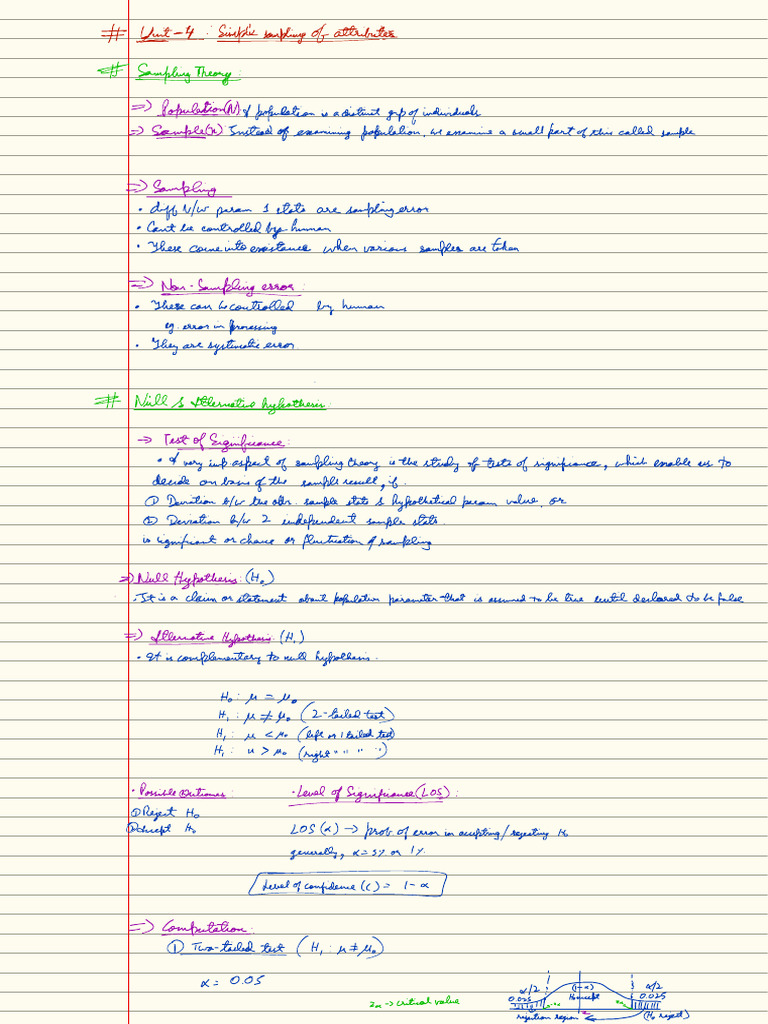 # Unit-4 : Simple sampling of attributes
# Sampling Theory:
=> Population(N) A population is a distinct grp of individuals
=> Sample(n) Instead of examining population, we examine a small part of this called sample
=> Sampling
• diff b/w param & stats are sampling error
• Cant be controlled by human
• These come into existance when various samples are taken
=> Non-Sampling error:
• These can be controlled by human
eg. error in processing
• They are systematic error
# Null & Alternative hypothesis:
-> Test of Significance:
• A very imp aspect of sampling theory is the study of tests of significance, which enable us to
decide on basis of the sample result, if
① Deviation b/w the obs. sample stats & hypothetical param value, or
② Deviation b/w 2 independent sample stats.
is significant or chance or fluctuation of sampling
=> Null Hypothesis: (H₀)
• It is a claim or statement about population parameter that is assumed to be true until declared to be false
=> Alternative Hypothesis: (H₁)
• It is complementary to null hypothesis.
H₀ : μ = μ₀
H₁ : μ ≠ μ₀ (2-tailed test)
H₁ : μ < μ₀ (left or 1 tailed test)
H₁ : μ > μ₀ (right " " " ")
• Possible Outcomes:
① Reject H₀
② Accept H₀
• Level of Significance (LOS):
LOS (α) -> prob of error in accepting/rejecting H₀
generally, α = 5% or 1%
Level of confidence (C) = 1 - α
=> Computation:
① Two-tailed test (H₁ : μ ≠ μ₀)
α = 0.05
α/2
0.025
(1-α)
H₀ accept
α/2
0.025
zα -> critical value
rejection region
(H₀ reject)